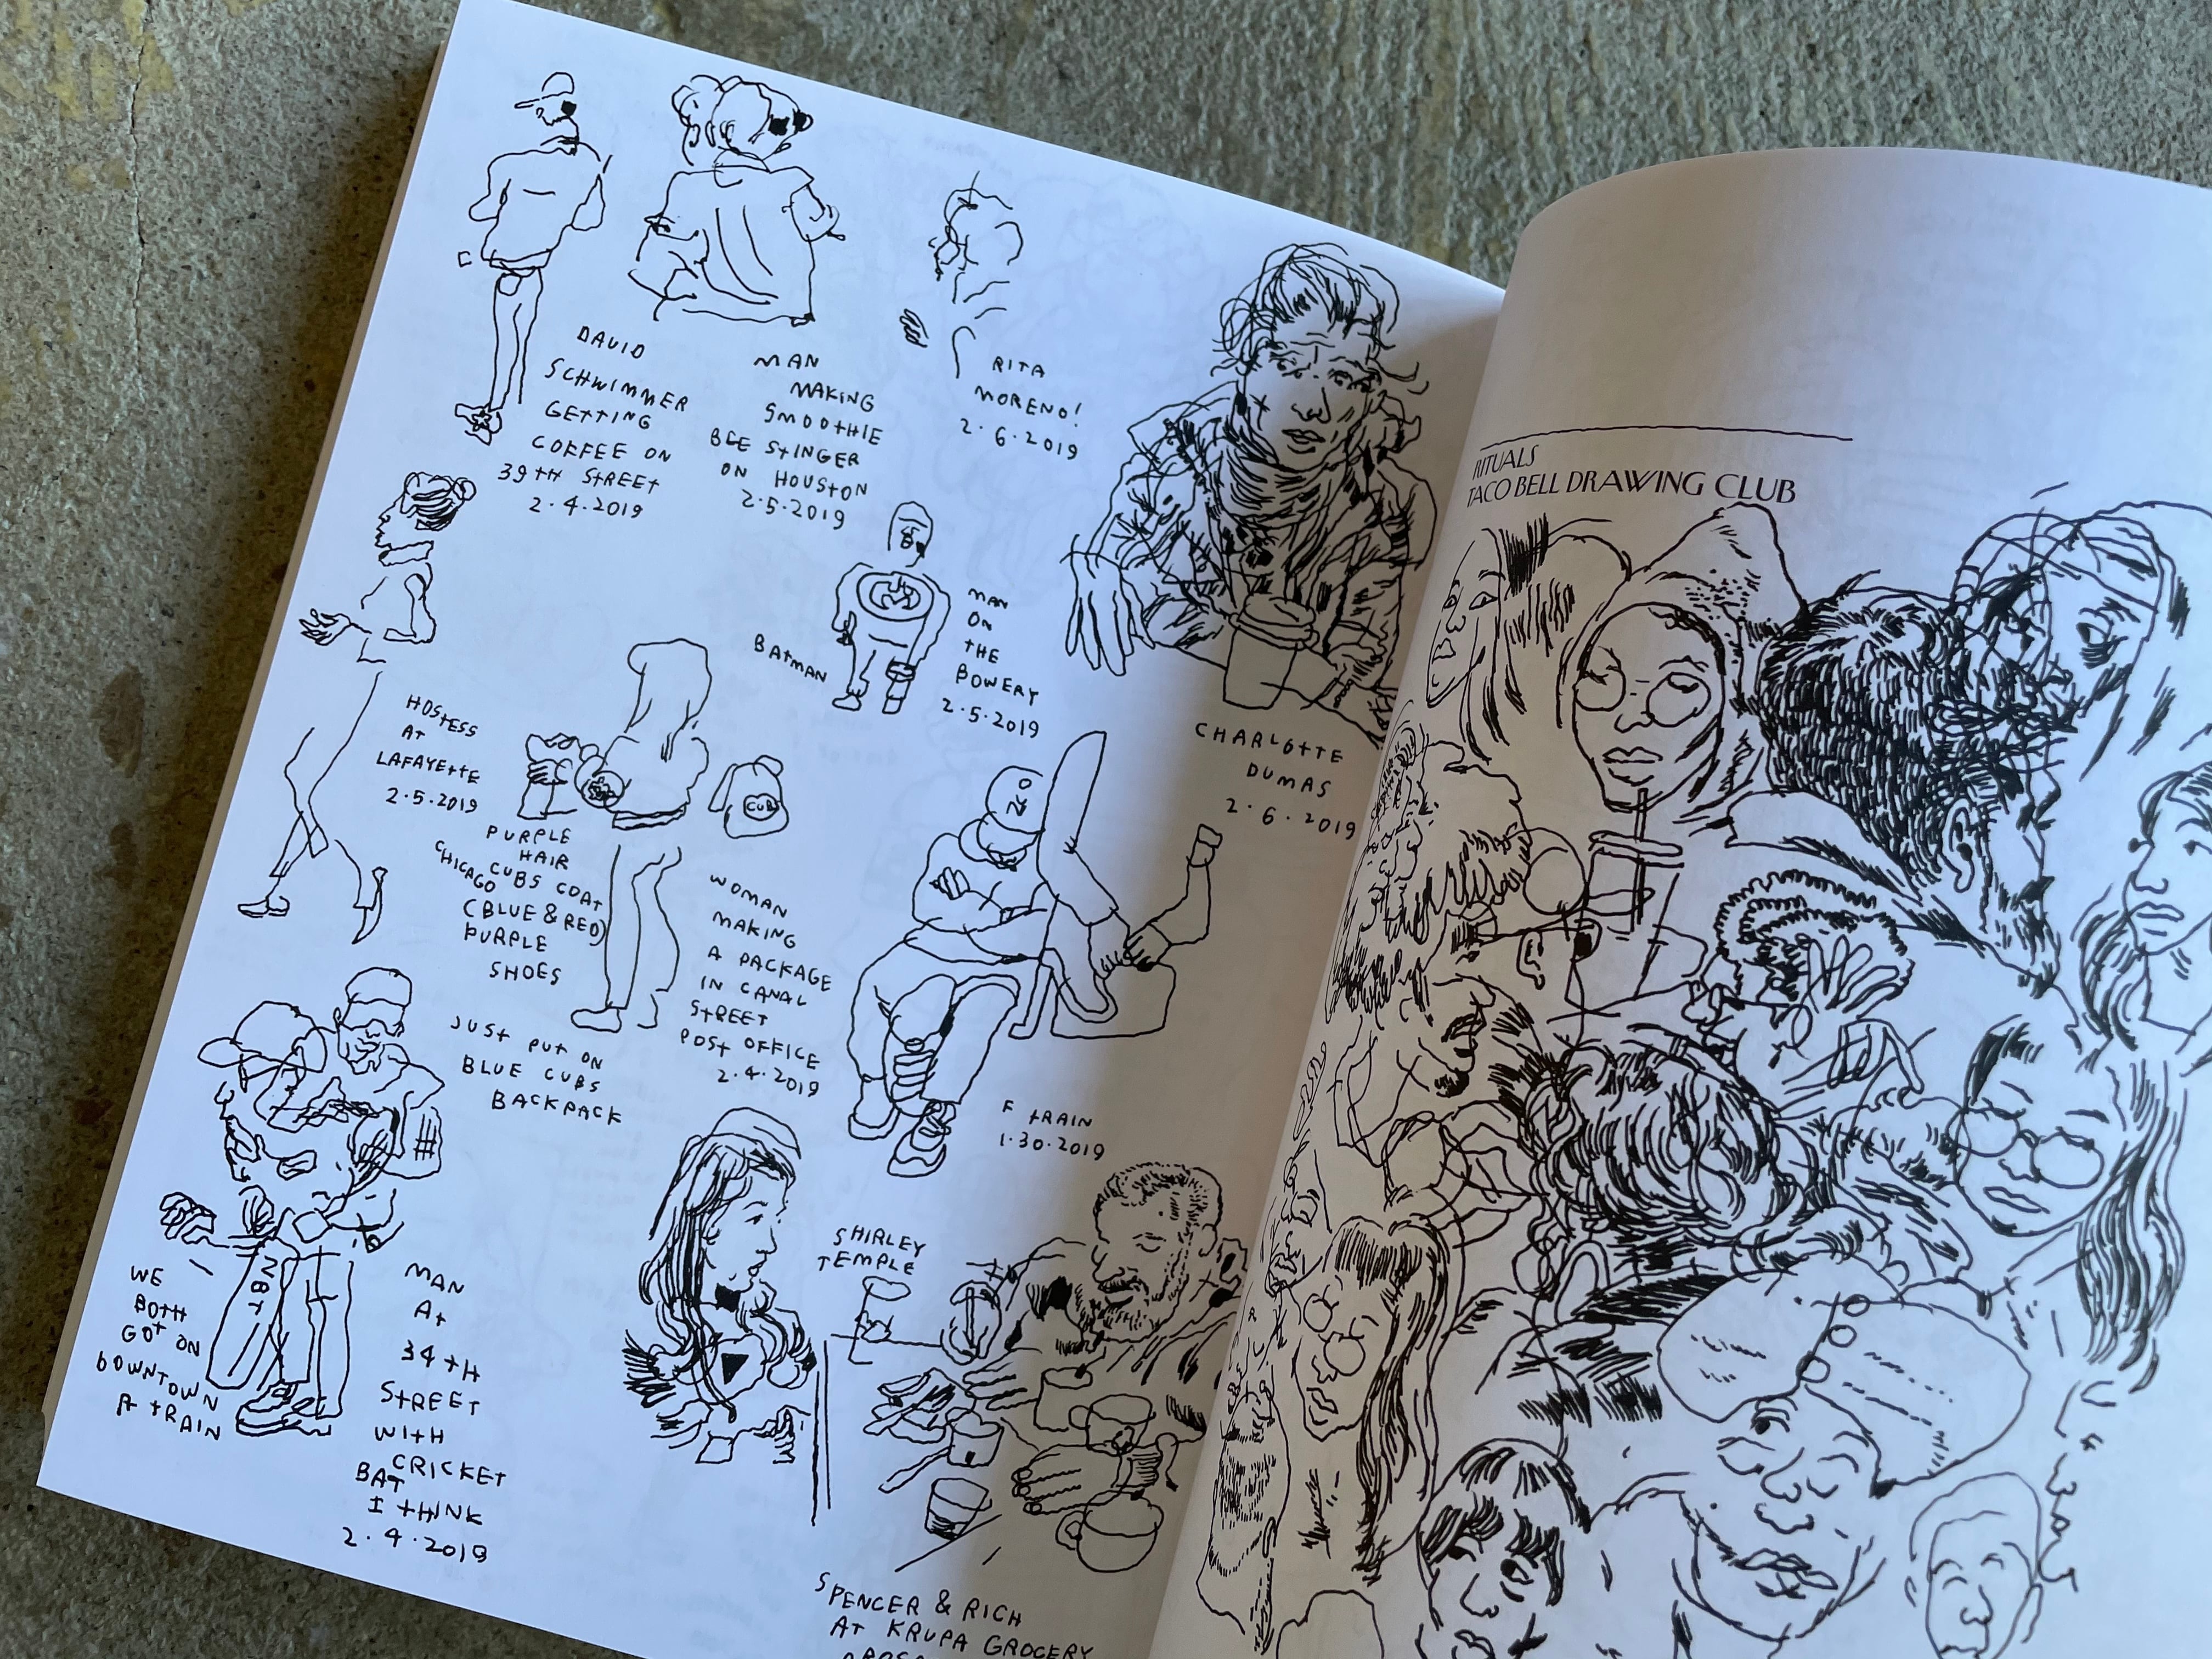 DAVID
SCHWIMMER
GETTING
COFFEE ON
39TH STREET
2.4.2019
MAN
MAKING
SMOOTHIE
BEE STINGER
ON HOUSTON
2.5.2019
RITA
MORENO!
2.6.2019
CHARLOTTE
DUMAS
2.6.2019
BATMAN
MAN
ON
THE
BOWERY
2.5.2019
HOSTESS
AT
LAFAYETTE
2.5.2019
CUB
PURPLE
HAIR
CHICAGO
CUBS COAT
(BLUE & RED)
PURPLE
SHOES
WOMAN
MAKING
A PACKAGE
IN CANAL
STREET
POST OFFICE
2.4.2019
JUST PUT ON
BLUE CUBS
BACKPACK
F TRAIN
1.30.2019
WE
BOTH
GOT ON
DOWNTOWN
A TRAIN
MAN
AT
34TH
STREET
WITH
CRICKET
BAT
I THINK
2.4.2019
SHIRLEY
TEMPLE
SPENCER & RICH
AT KRUPA GROCERY
RITUALS
TACO BELL DRAWING CLUB